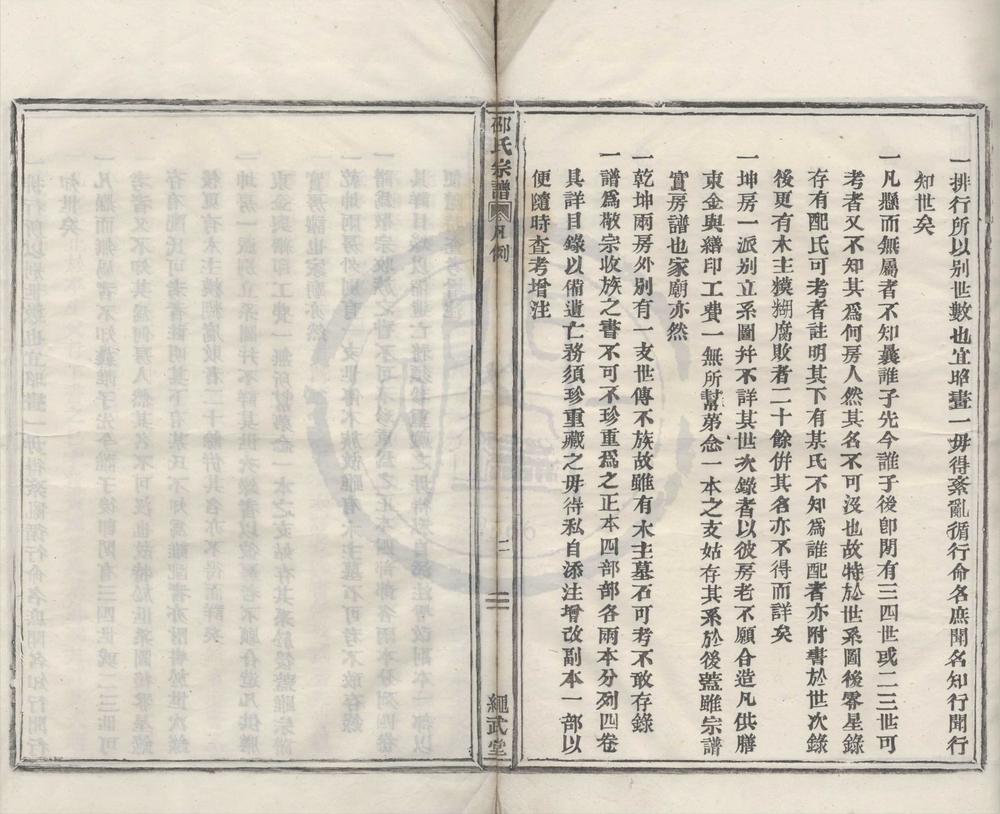 一排行所以别世數也宜昭畫一毋得紊亂循行命名庶聞名知行聞行
知世矣
一凡懸而無屬者不知曩誰子先今誰子後卽閒有三四世或二三世可
考者又不知其為何房人然其名不可沒也故特於世系圖後零星錄
存有配氏可考者註明其下有某氏不知為誰配者亦附書於世次錄
後更有木主糢糊腐敗者二十餘併其名亦不得而詳矣
一坤房一派别立系圖幷不詳其世次錄者以彼房老不願合造凡供膳
束金與繕印工費一無所幫第念一本之支姑存其系於後葢雖宗譜
實房譜也家廟亦然
一乾坤兩房外别有一支世傳不族故雖有木主墓石可考不敢存錄
一譜爲敬宗收族之書不可不珍重爲之正本四部部各兩本分列四卷
其詳目錄以備遺亡務須珍重藏之毋得私自添注增改副本一部以
便隨時查考增注
邵氏宗譜 卷 凡例
二
繩武堂